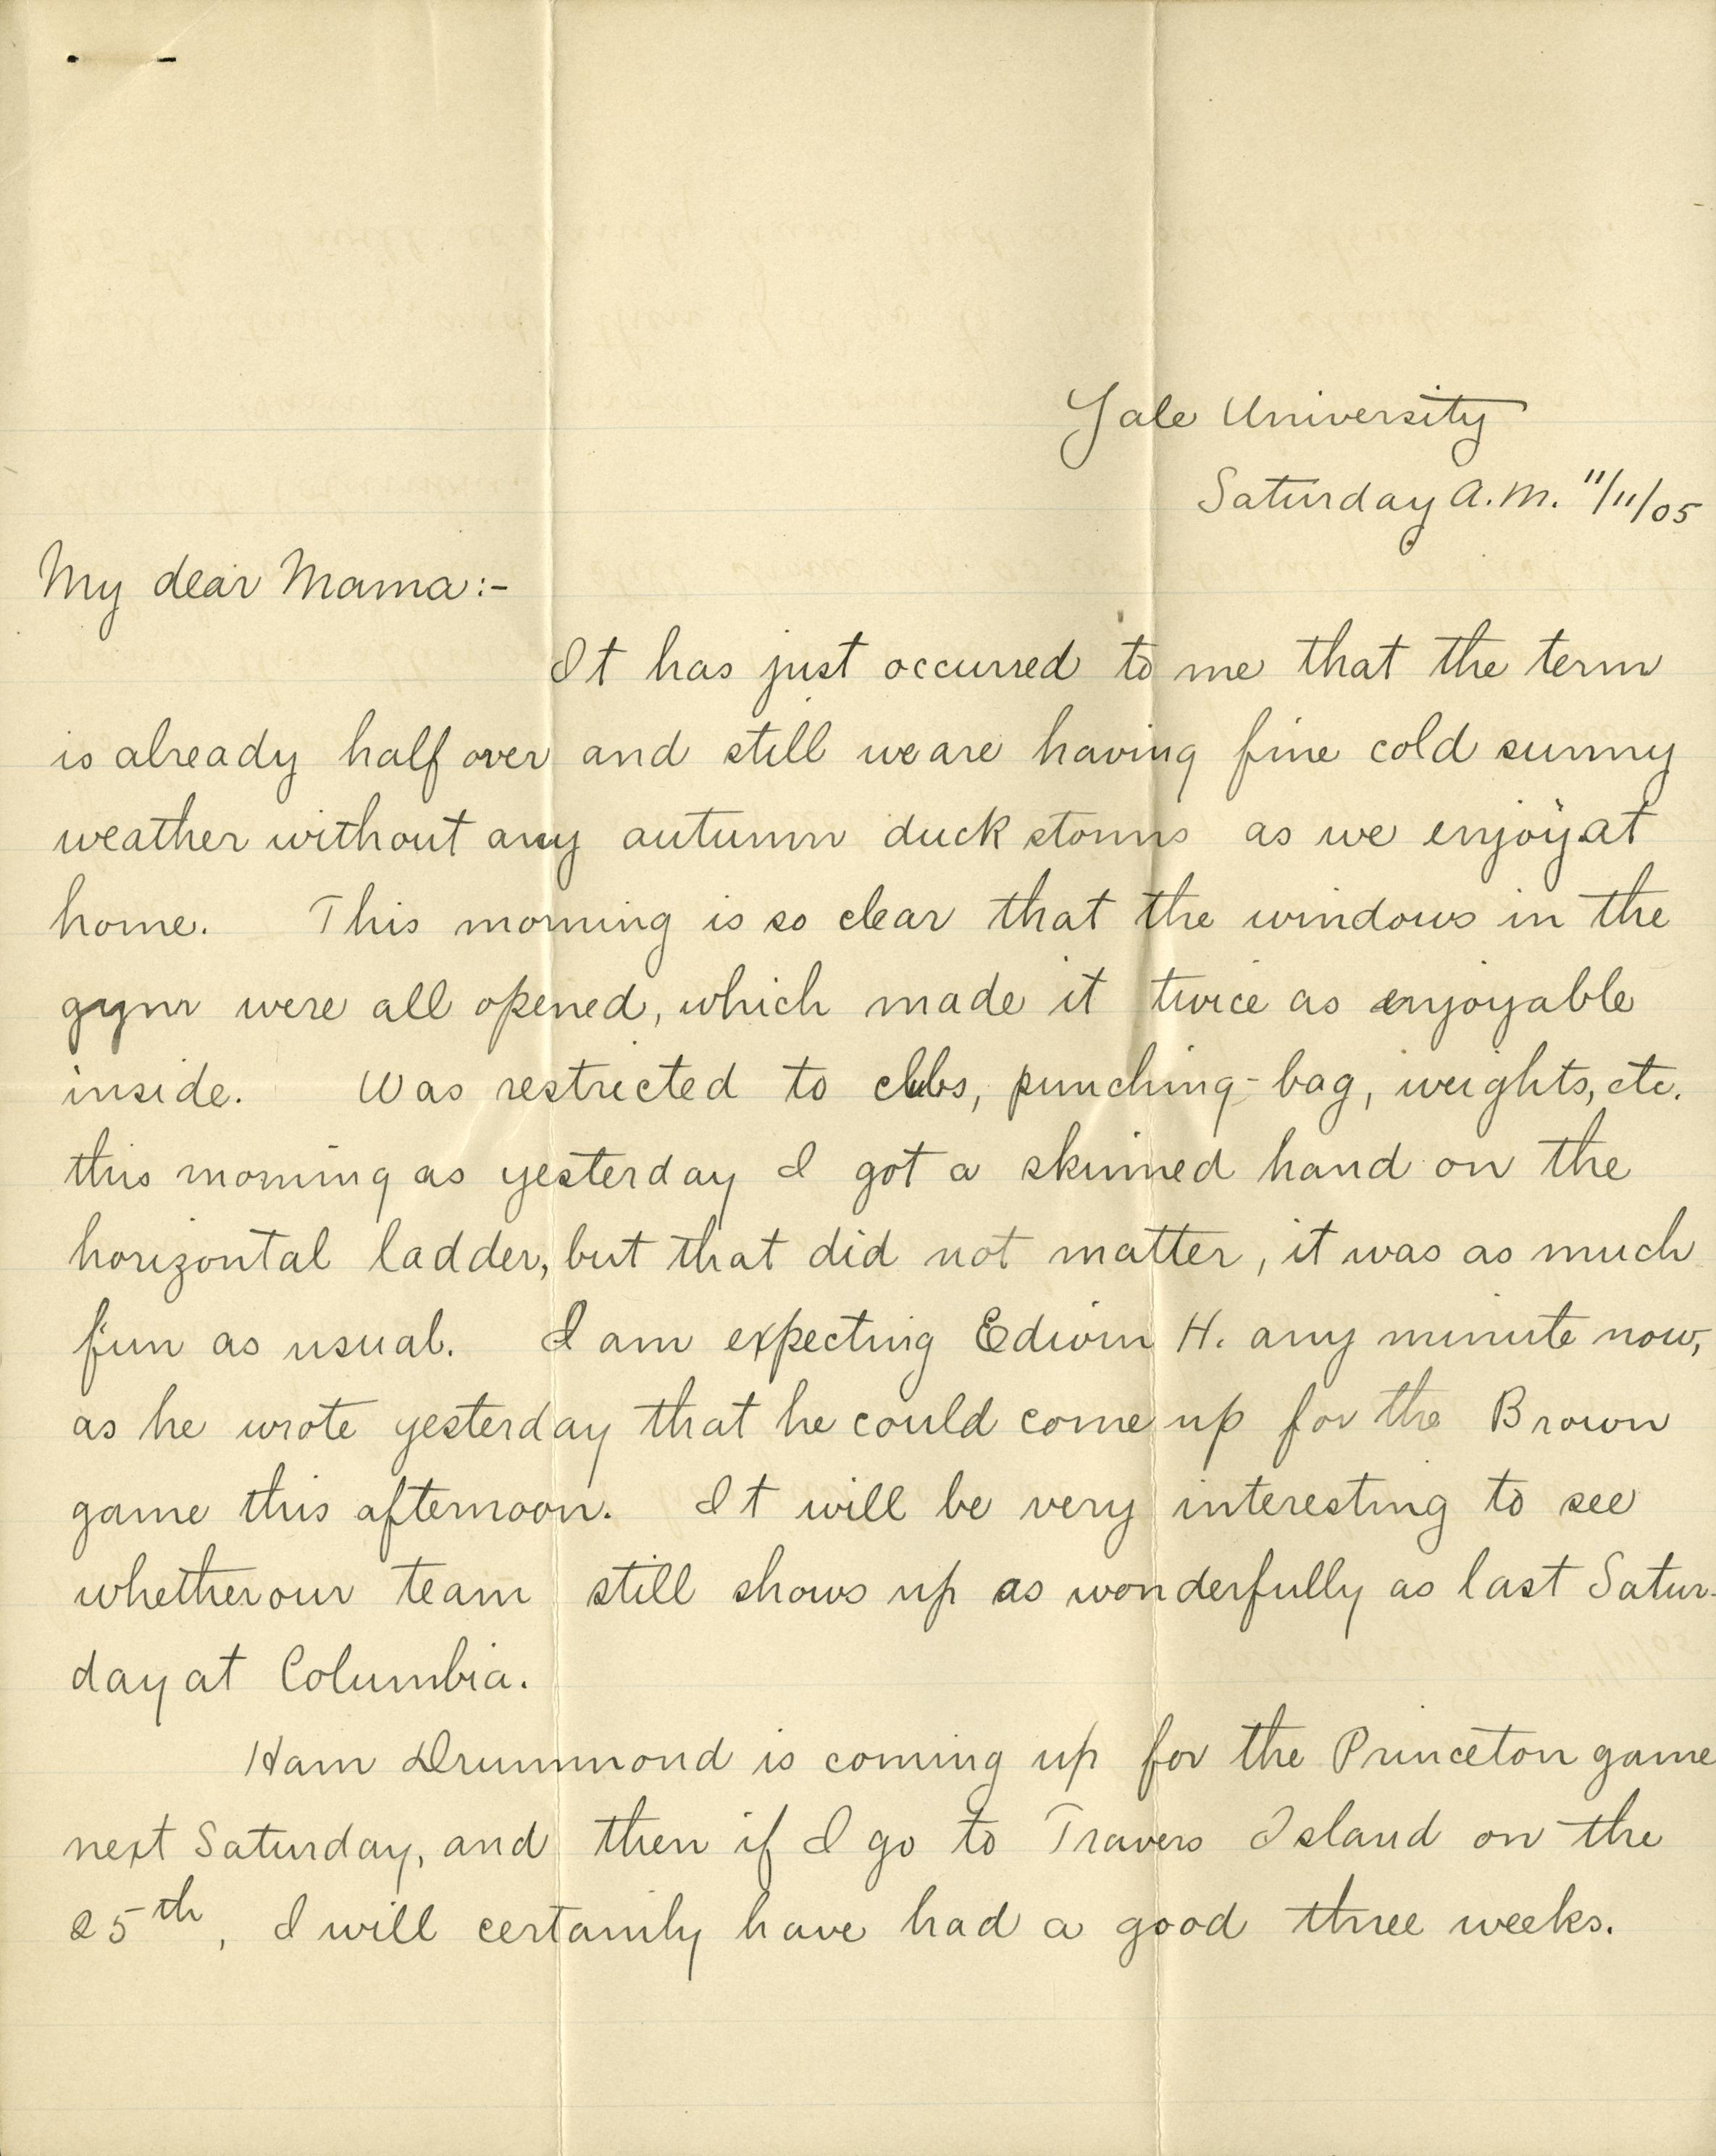 Yale University
Saturday A.M. 11/11/05
My dear Mama:-
It has just occurred to me that the term
is already half over and still we are having fine cold sunny
weather without any autumn duck storms as we enjoy at
home. This morning is so clear that the windows in the
gym were all opened, which made it twice as enjoyable
inside. Was restricted to clubs, punching-bag, weights, etc.
this morning as yesterday I got a skinned hand on the
horizontal ladder, but that did not matter, it was as much
fun as usual. I am expecting Edwin H. any minute now,
as he wrote yesterday that he could come up for the Brown
game this afternoon. It will be very interesting to see
whether our team still shows up as wonderfully as last Satur-
day at Columbia.
Ham Drummond is coming up for the Princeton game
next Saturday, and then if I go to Travers Island on the
25th, I will certainly have had a good three weeks.